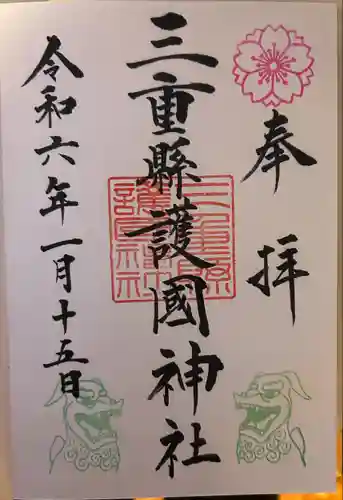 奉拝
三重縣護國神社
令和六年一月十五日
三重縣護國神社